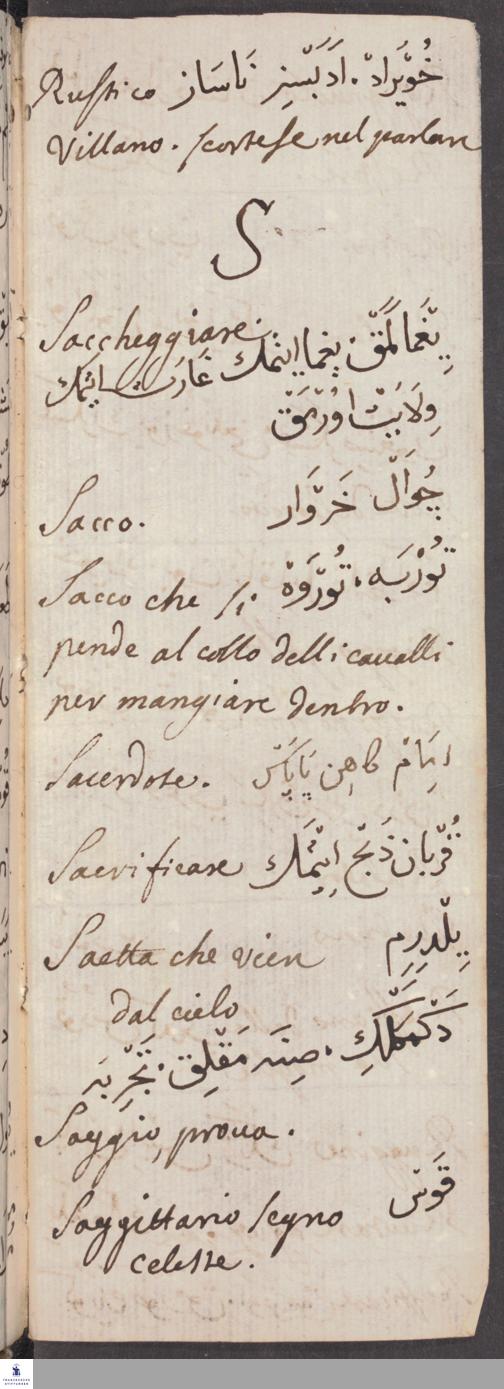 Rustico خُوَيْرَادْ. اَدَبْسِزِ نَاسَازْ
Villano. scortese nel parlare
S
Saccheggiare. يَغْمَالَمَقْ يغما ايتمك غَارَتْ ايتمك
وِلَايَتْ اوُرْمَقْ
Sacco. چُوَالْ خَرْوَار
Sacco che si تُوْرْبَه. تُورْوَهْ
pende al collo delli cavalli
per mangiare dentro.
Sacerdote. اِمَامْ كاهِن پَاپَاسْ
Sacrificare قُرْبَان ذَبْح اِيتْمَكْ
Saetta che vien يِلْدِرِمْ
dal cielo
صِنَه مَقْلِقْ. تَجْرِبَه
Saggio, prova.
Saggittario segno قَوسْ
celeste.